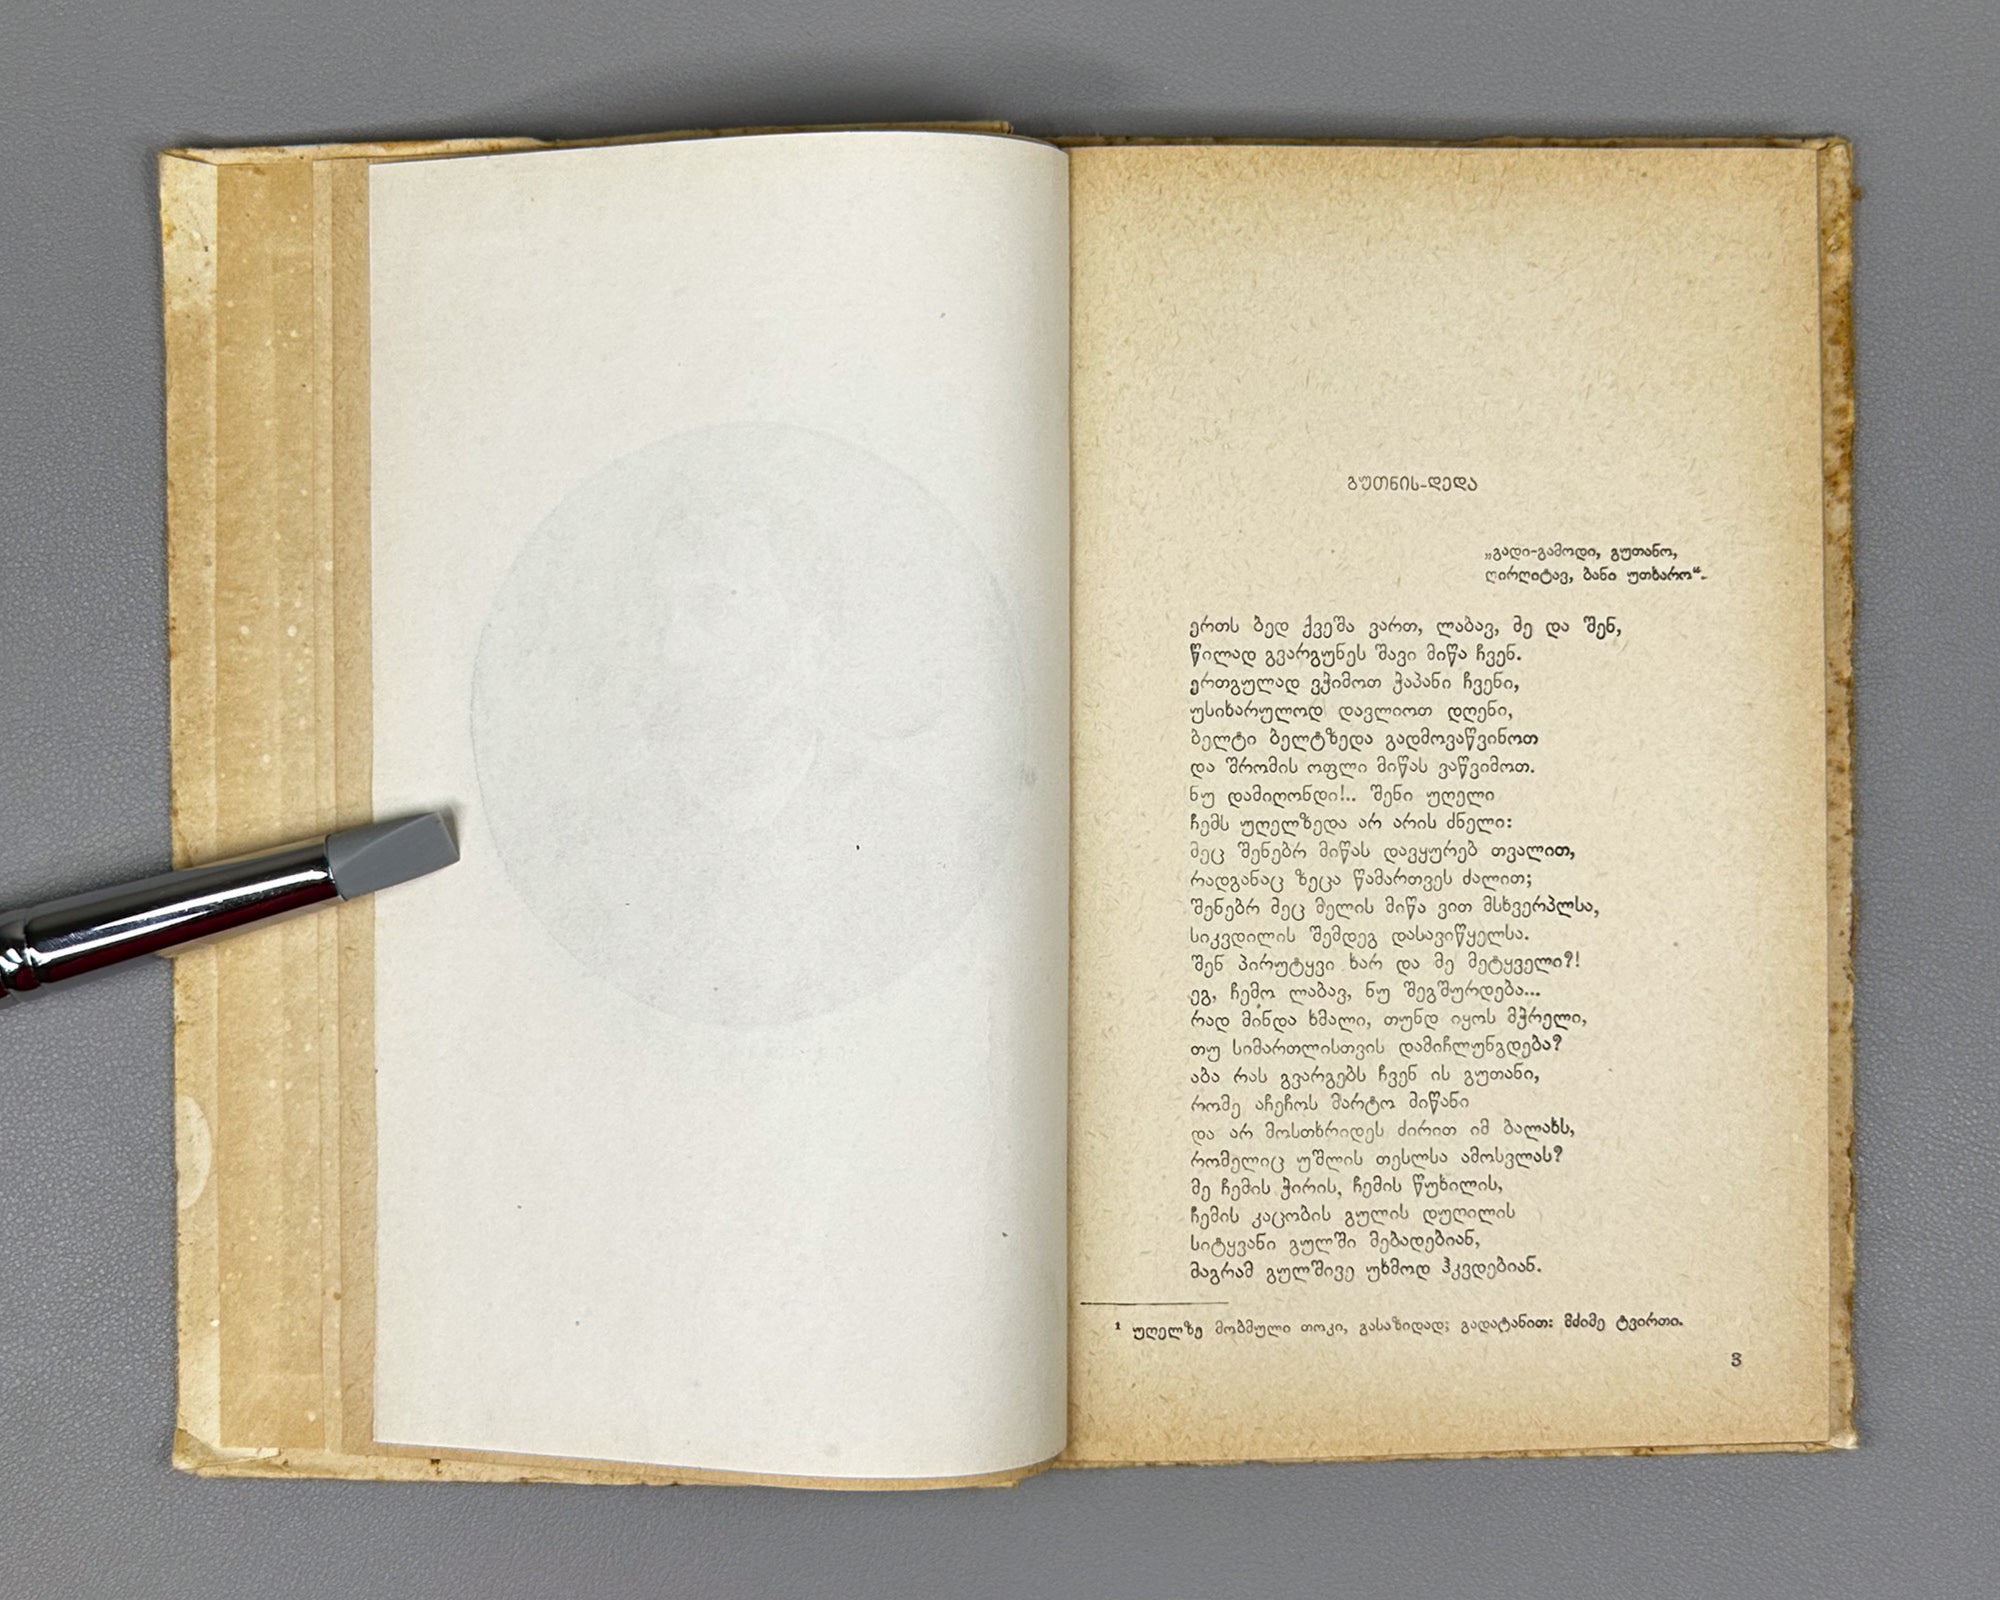 გუთნის-დედა
„გადი-გამოდი, გუთანო,
ღირღიტავ, ბანი უთხარო“.
ერთს ბედ ქვეშა ვართ, ლაბავ, მე და შენ,
წილად გვარგუნეს შავი მიწა ჩვენ.
ერთგულად ვჭიმოთ ჭაპანი ჩვენი,
უსიხარულოდ დავლიოთ დღენი,
ბელტი ბელტზედა გადმოვაწვინოთ
და შრომის ოფლი მიწას ვაწვიმოთ.
ნუ დამიღონდი!.. შენი უღელი
ჩემს უღელზედა არ არის ძნელი:
მეც შენებრ მიწას დავყურებ თვალით,
რადგანაც ზეცა წამართვეს ძალით;
შენებრ მეც მელის მიწა ვით მსხვერპლსა,
სიკვდილის შემდეგ დასავიწყელსა.
შენ პირუტყვი ხარ და მე მეტყველი?!
ეგ, ჩემო ლაბავ, ნუ შეგშურდება...
რად მინდა ხმალი, თუნდ იყოს მჭრელი,
თუ სიმართლისთვის დამიჩლუნგდება?
აბა რას გვარგებს ჩვენ ის გუთანი,
რომე აჩეჩოს მარტო მიწანი
და არ მოსთხრიდეს ძირით იმ ბალახს,
რომელიც უშლის თესლსა ამოსვლას?
მე ჩემის ჭირის, ჩემის წუხილის,
ჩემის კაცობის გულის დუღილის
სიტყვანი გულში მებადებიან,
მაგრამ გულშივე უხმოდ ჰკვდებიან.
¹ უღელზე მობმული თოკი, გასაზიდად; გადატანით: მძიმე ტვირთი.
3